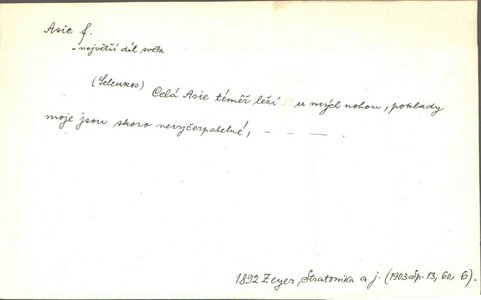 Asie f.
- největší díl světa
(Seleukos) Celá Asie téměř leží u mých nohou, poklady
moje jsou skoro nevyčerpatelné, - - —
1892 Zeyer, Stratonika a j. (1903 Sp. 13, 60, 6).